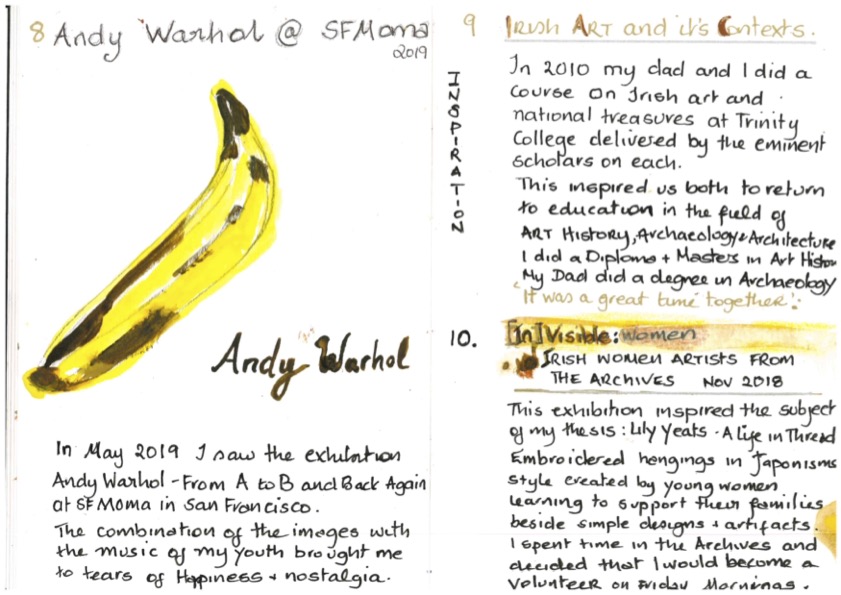 8 Andy Warhol @ SFMoma
2019
Andy Warhol
In May 2019 I saw the exhibition
Andy Warhol - From A to B and Back Again
at SFMoma in San Francisco.
The combination of the images with
the music of my youth brought me
to tears of Happiness + nostalgia.
INSPIRATION
9 Irish Art and it's Contexts.
In 2010 my dad and I did a
course on Irish art and
national treasures at Trinity
College delivered by the eminent
scholars on each.
This inspired us both to return
to education in the field of
ART History, Archaeology & Architecture
I did a Diploma + Masters in Art History
My Dad did a degree in Archaeology
"It was a great time together".
10. [In]Visible: women
IRISH WOMEN ARTISTS FROM
THE ARCHIVES NOV 2018
This exhibition inspired the subject
of my thesis: Lily Yeats - A Life in Thread
Embroidered hengings in Japonisms
style created by young women
learning to support their families
beside simple designs + artifacts.
I spent time in the Archives and
decided that I would become a
volunteer on Friday Mornings.